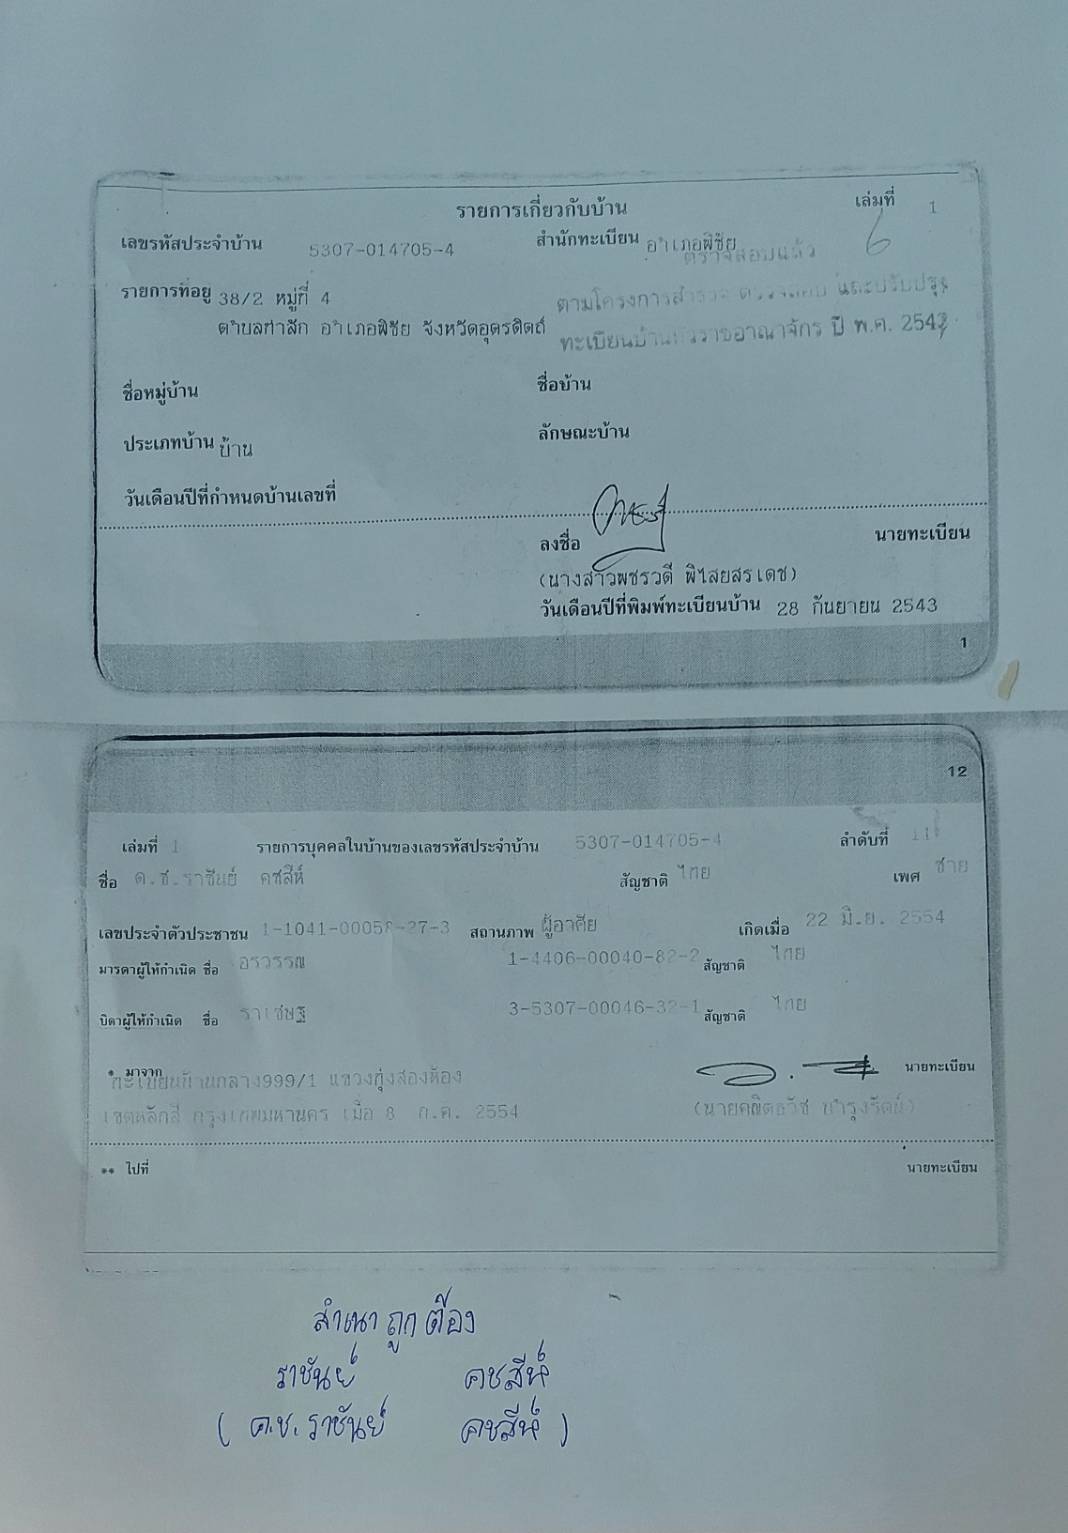 รายการเกี่ยวกับบ้าน เล่มที่ 1
6
เลขรหัสประจำบ้าน 5307-014705-4 สำนักทะเบียน อำเภอพิชัย
ตรวจสอบแล้ว
รายการที่อยู่ 38/2 หมู่ที่ 4 ตามโครงการสำรวจ ตรวจสอบ และปรับปรุง
ตำบลท่าสัก อำเภอพิชัย จังหวัดอุตรดิตถ์ ทะเบียนบ้านทั่วราชอาณาจักร ปี พ.ศ. 2547
ชื่อหมู่บ้าน ชื่อบ้าน
ประเภทบ้าน บ้าน ลักษณะบ้าน
วันเดือนปีที่กำหนดบ้านเลขที่
ลงชื่อ นายทะเบียน
(นางสาวพชรวดี พิไสยสรเดช)
วันเดือนปีที่พิมพ์ทะเบียนบ้าน 28 กันยายน 2543
1
12
เล่มที่ 1 รายการบุคคลในบ้านของเลขรหัสประจำบ้าน 5307-014705-4 ลำดับที่ 11
ชื่อ ด.ช.ราชันย์ คชสีห์ สัญชาติ ไทย เพศ ชาย
เลขประจำตัวประชาชน 1-1041-00058-27-3 สถานภาพ ผู้อาศัย เกิดเมื่อ 22 มิ.ย. 2554
มารดาผู้ให้กำเนิด ชื่อ อรวรรณ 1-4406-00040-82-2 สัญชาติ ไทย
บิดาผู้ให้กำเนิด ชื่อ ราเชษฐ์ 3-5307-00046-32-1 สัญชาติ ไทย
* มาจาก นายทะเบียน
ทะเบียนบ้านกลาง999/1 แขวงทุ่งสองห้อง
เขตหลักสี่ กรุงเทพมหานคร เมื่อ 8 ก.ค. 2554 (นายคณิตธวัช บำรุงรัตน์)
** ไปที่ นายทะเบียน
สำเนาถูกต้อง
ราชันย์ คชสีห์
( ด.ช. ราชันย์ คชสีห์ )